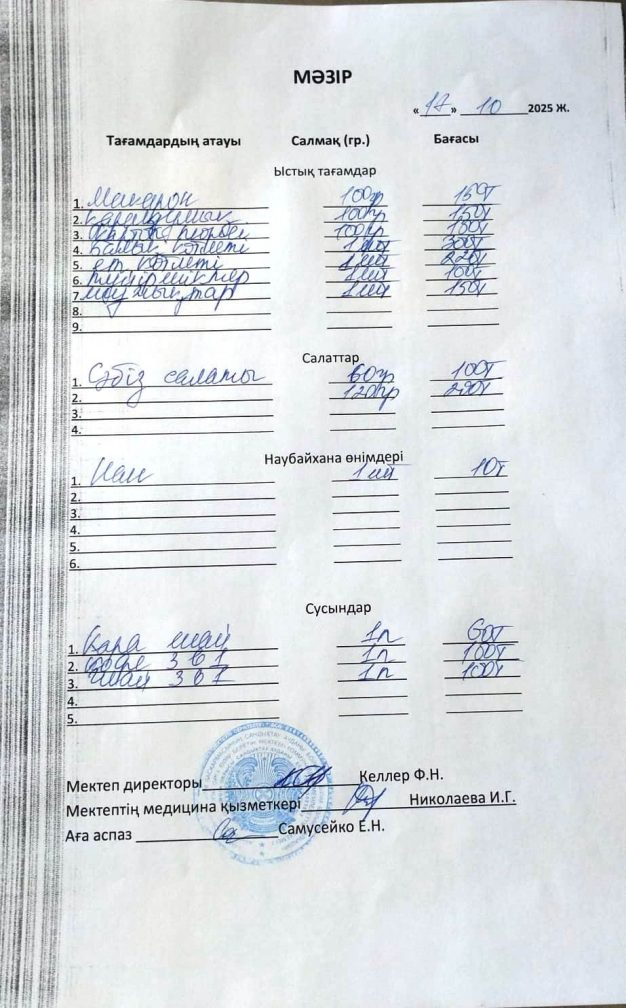 МӘЗІР
«17» 10 2025 Ж.
Тағамдардың атауы Салмақ (гр.) Бағасы
Ыстық тағамдар
1. Макарон 100гр 150т
2. Қарақұмық 100гр 150т
3. 100гр 150т
4. Балық котлеті 1 шт 300т
5. Ет котлеті 1 шт 220т
6. 1 шт 100т
7. 1 шт 150т
8.
9.
Салаттар
1. Сәбіз салаты 60гр 100т
2. 120гр 200т
3.
4.
Наубайхана өнімдері
1. Нан 1 шт 10т
2.
3.
4.
5.
6.
Сусындар
1. Қара шай 1п 60т
2. Кофе 3 в 1 1п 100т
3. Шай 3 в 1 1п 100т
4.
5.
Мектеп директоры Келлер Ф.Н.
Мектептің медицина қызметкері Николаева И.Г.
Аға аспаз Самусейко Е.Н.